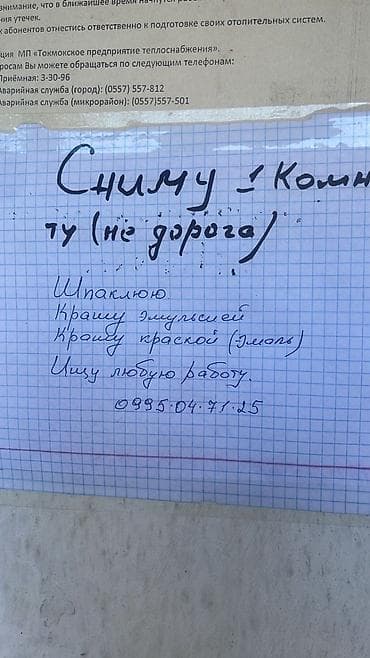 внимание, что в ближайшее время
ния утечек.
абонентов отнестись ответственно к подготовке своих отопительных систем.
ция МП «Токмокское предприятие теплоснабжения».
росам Вы можете обращаться по следующим телефонам:
Приёмная: 3-30-96
Аварийная служба (город): (0557) 557-812
Аварийная служба (микрорайон): (0557)557-501
Сниму 1 комн
ту (не дорога)
Шпаклюю
Крашу эмульсией
Крашу краской (эмоль)
Ищу любую работу.
0995.04.71.25